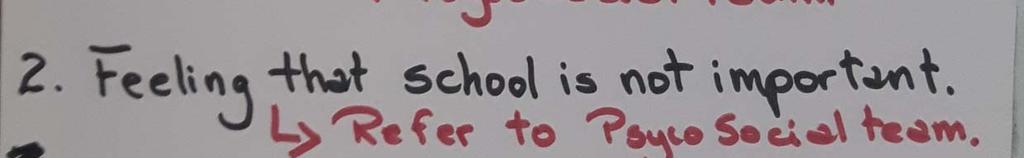 2. Feeling that school is not important.
↳ Refer to Psyco Social team.